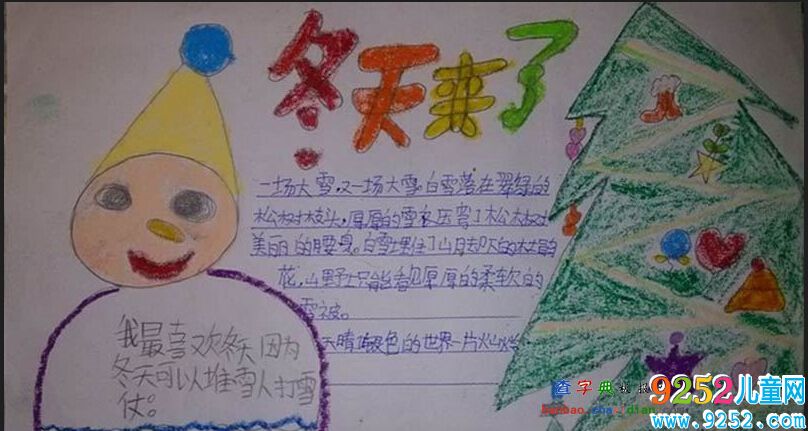 冬天来了
一场大雪,又一场大雪。白雪落在翠绿的
松树枝头,厚厚的雪衣压弯了松树
美丽的腰身。白雪埋住了山
花,山野上只能看见厚厚的柔软的
雪被。
天晴 银色的世界一片
我最喜欢冬天因为
冬天可以堆雪人打雪
仗。
查字典
9252儿童网
www.9252.com